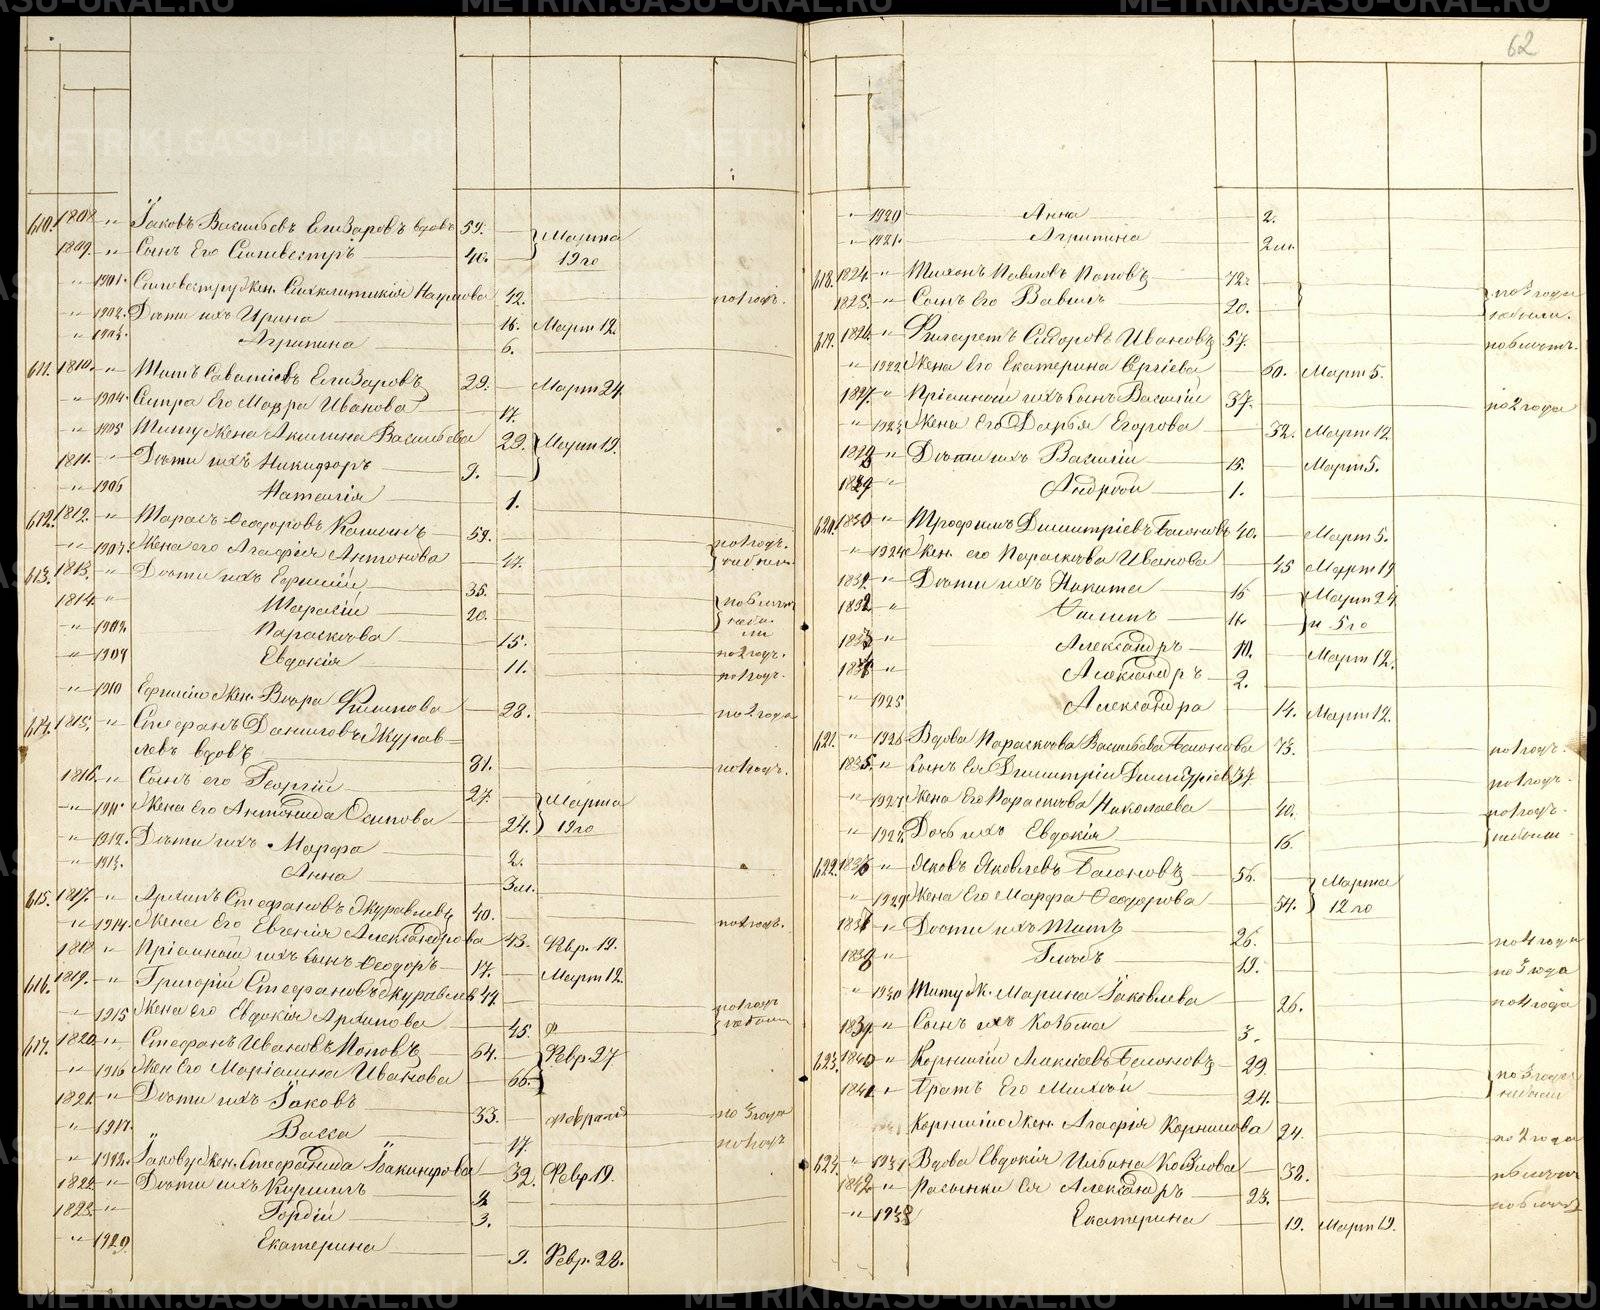 METRIKI.GASO-URAL.RU
62
610. 1808 " Їаковъ Васильевъ Елизаровъ вдовъ 59.
1809. " Сынъ Его Силивестръ 40. Марта 19го
" 1901. Силивестру жен. Сихклитикія Наумова 42. по1годъ.
" 1902. Дѣти ихъ Ирина 16. Март 12.
" 1903. Агрипина 6.
611. 1810. " Титъ Саватіевъ Елизаровъ 29. Март 24.
" 1904. Сестра Его Мавра Иванова 17.
" 1905 Титу жена Акилина Васильева 29. Март 19.
1811. " Дѣти ихъ Никифоръ 9.
" 1906 Наталія 1.
612. 1812. " Тарасъ Ѳеодоровъ 59.
" 1907. Жена его Агафія Антонова 47. по1годъ. небыли.
613. 1813. " Дѣти ихъ Ефимій 35.
1814. " Тарасій 20. по6лѣтъ небыли
" 1908. Параскева 15. по2годъ.
" 1909 Евдокія 11. по1годъ.
" 1910 Ефимію Жен. Вѣра Филипова 28. по2года
614. 1815. " Стефанъ Даниловъ Журавлевъ вдовъ 81. по1годъ.
1816. " Сынъ его Георгій 27. Марта 19го
" 1911 Жена Его Антонида Осипова 24.
" 1912. Дѣти ихъ Марфа 2.
" 1913. Анна 3м.
615. 1817. " Архипъ Стефановъ Журавлевъ 40.
" 1914. Жена Его Евгенія Александрова 43. Февр. 19. по2годъ.
1818 " Пріемной ихъ Сынъ Ѳеодоръ 17. Март 12.
616. 1819. " Григорій Стефановъ Журавлев 47 по1годъ небыли
" 1915 Жена его Евдокія Архипова 45. Ф
617. 1820. " Стефанъ Ивановъ Поповъ 64. Февр. 27
" 1916 Жен Его Маріамна Иванова 66.
1821. " Дѣти ихъ Їаковъ 33. февраля по3года
" 1917. Васса 17. по1годъ
" 1918. Їакову жен. Стефанида Їоакимирова 32. Февр 19.
1822. " Дѣти ихъ Кирилъ
1823. " Гордій 3.
" 1929 Екатерина 9. Февр. 28.
" 1920 Анна 2.
" 1921. Агрипина 2м.
618. 1824. " Тихонъ Павловъ Поповъ 72.
1825. " Сынъ Его Вавилъ 20. по3года небыли.
619. 1826. " Филаретъ Сидоровъ Ивановъ 57. по6лѣтъ.
" 1922 Жена Его Екатерина Сргіева 60. Март 5.
1827. " Пріемной ихъ Сынъ Василій 37. по2года
" 1923 Жена Его Дарья Егорова 32. Март 12.
1828 " Дѣти ихъ Василій 15. Март 5.
1829 " Андрей 1.
620. 1830 " Трофимъ Димитріевъ 40. Март 5.
" 1924 Жен. его Параскева Иванова 45 Март 19
1831. " Дѣти ихъ Никита 16 Март 24. и 5го
1832 " Филипъ
1833 " Александръ 10. Март 12.
1834 " Александръ 2.
" 1925 Александра 14. Март 12.
621. " 1926 Вдова Параскева Васильева 73. по1годъ.
1835. " Сынъ Ея Димитрій Димитріев 37. по1годъ.
" 1927 Жена Его Параскева Николаева 40. по1годъ. небыли
" 1928. Дочь ихъ Евдокія 16.
622. 1836 " Яковъ Яковлевъ 56. Марта 12го
" 1929 Жена Его Марфа Ѳеодорова 54.
1837 " Дѣти ихъ Титъ 26. по4года
1838 " Глебъ 19. по3года
" 1930 Титу Ж. Марина Їаковлева 26. по4года
1839. " Сынъ ихъ Козьма 3.
623. 1840 " Корнилій Алексѣевъ 29. по3года небыли
1841 " Братъ Его Михей 24.
Корнилію Жен. Агафія Корнилова 24. по2года
624. " 1931 Вдова Евдокія Ильина Козлова 38. по6лѣтъ
1842 " Пасынки Ея Александръ 23. по6лѣтъ
" 1933 Екатерина 19. Март 19.